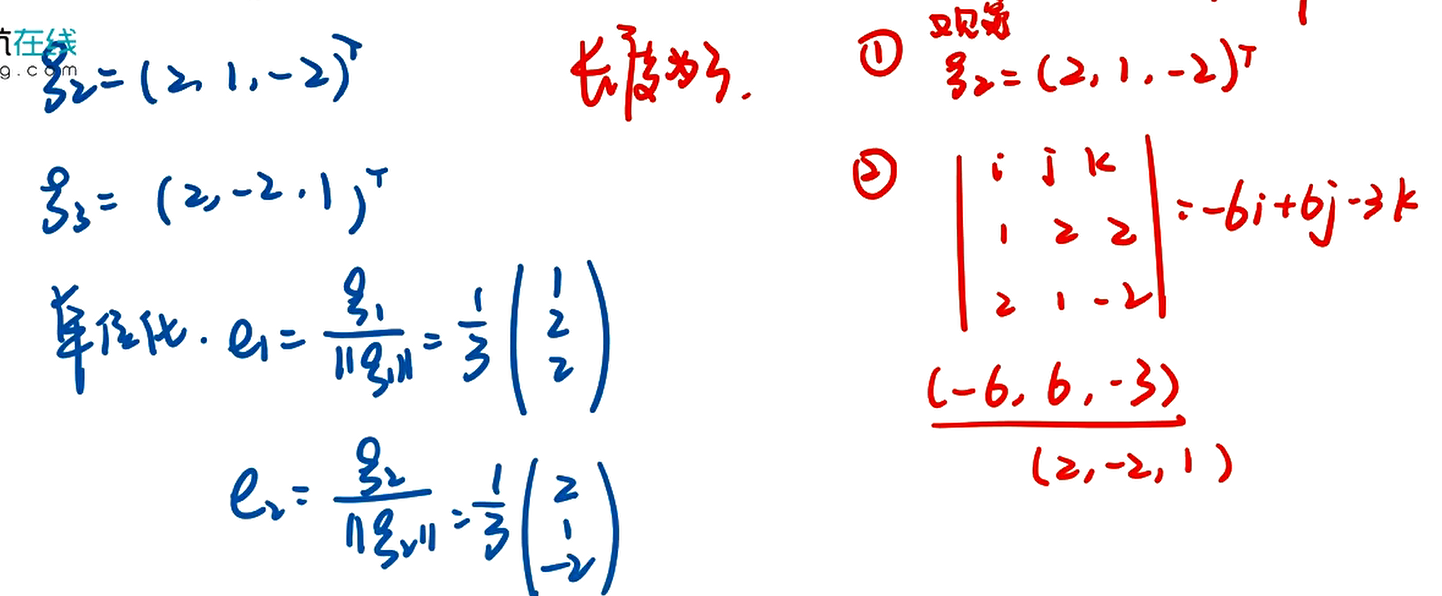 航在线
g.com
ξ₂=(2, 1, -2)ᵀ
ξ₃= (2, -2, 1)ᵀ
单位化. e₁= ξ₁/||ξ₁|| = 1/3 (1 2 2)
e₂= ξ₂/||ξ₂|| = 1/3 (2 1 -2)
长度为3.
① 观察
ξ₂=(2, 1, -2)ᵀ
② | i j k
1 2 2
2 1 -2 | = -6i+6j-3k
(-6, 6, -3)
(2, -2, 1)